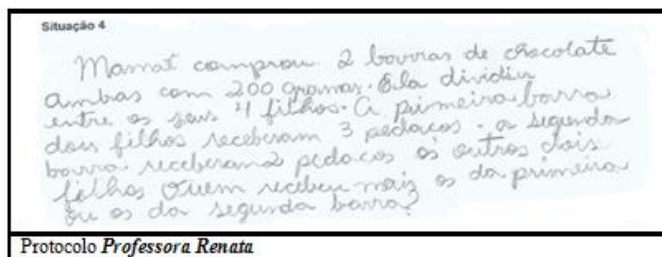 Situação 4
Mamãe comprou 2 barras de chocolate
ambas com 200 gramas. Ela dividiu
entre os seus 4 filhos. A primeira barra
dois filhos receberam 3 pedaços. a segunda
barra receberam 2 pedaços os outros dois
filhos Quem recebeu mais os da primeira
ou os da segunda barra?
Protocolo Professora Renata